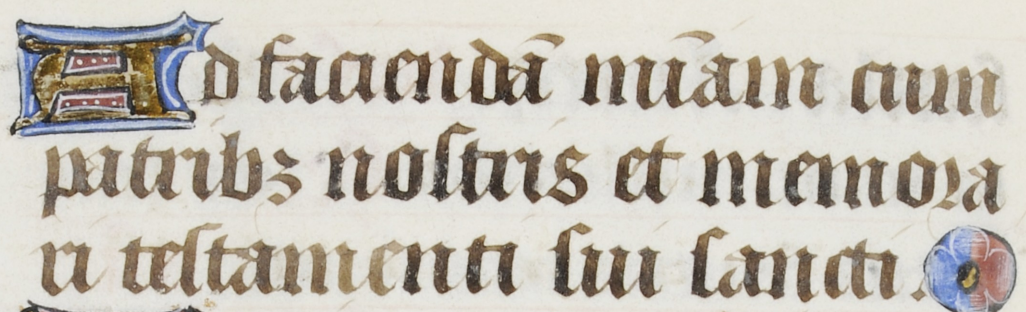 Ad faciendā mīam cum
patribꝫ nostris et memora
ri testamenti sui sancti .